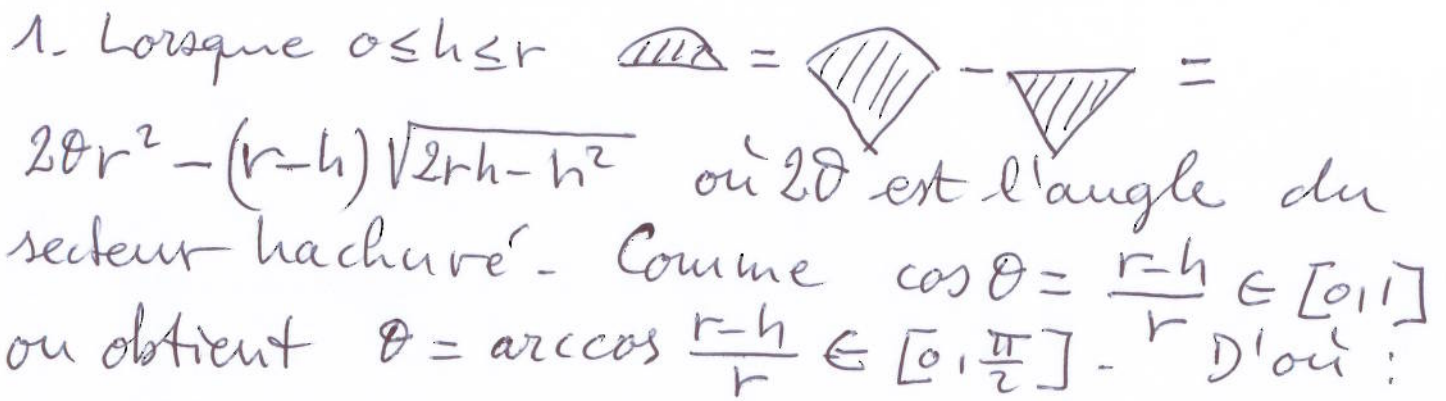 1. Lorsque 0≤h≤r = - =
2θr² - (r-h)√(2rh-h²) où 2θ est l'angle du
secteur hachuré. Comme cos θ = (r-h)/r ∈ [0,1]
on obtient θ = arccos (r-h)/r ∈ [0, π/2]. D'où :